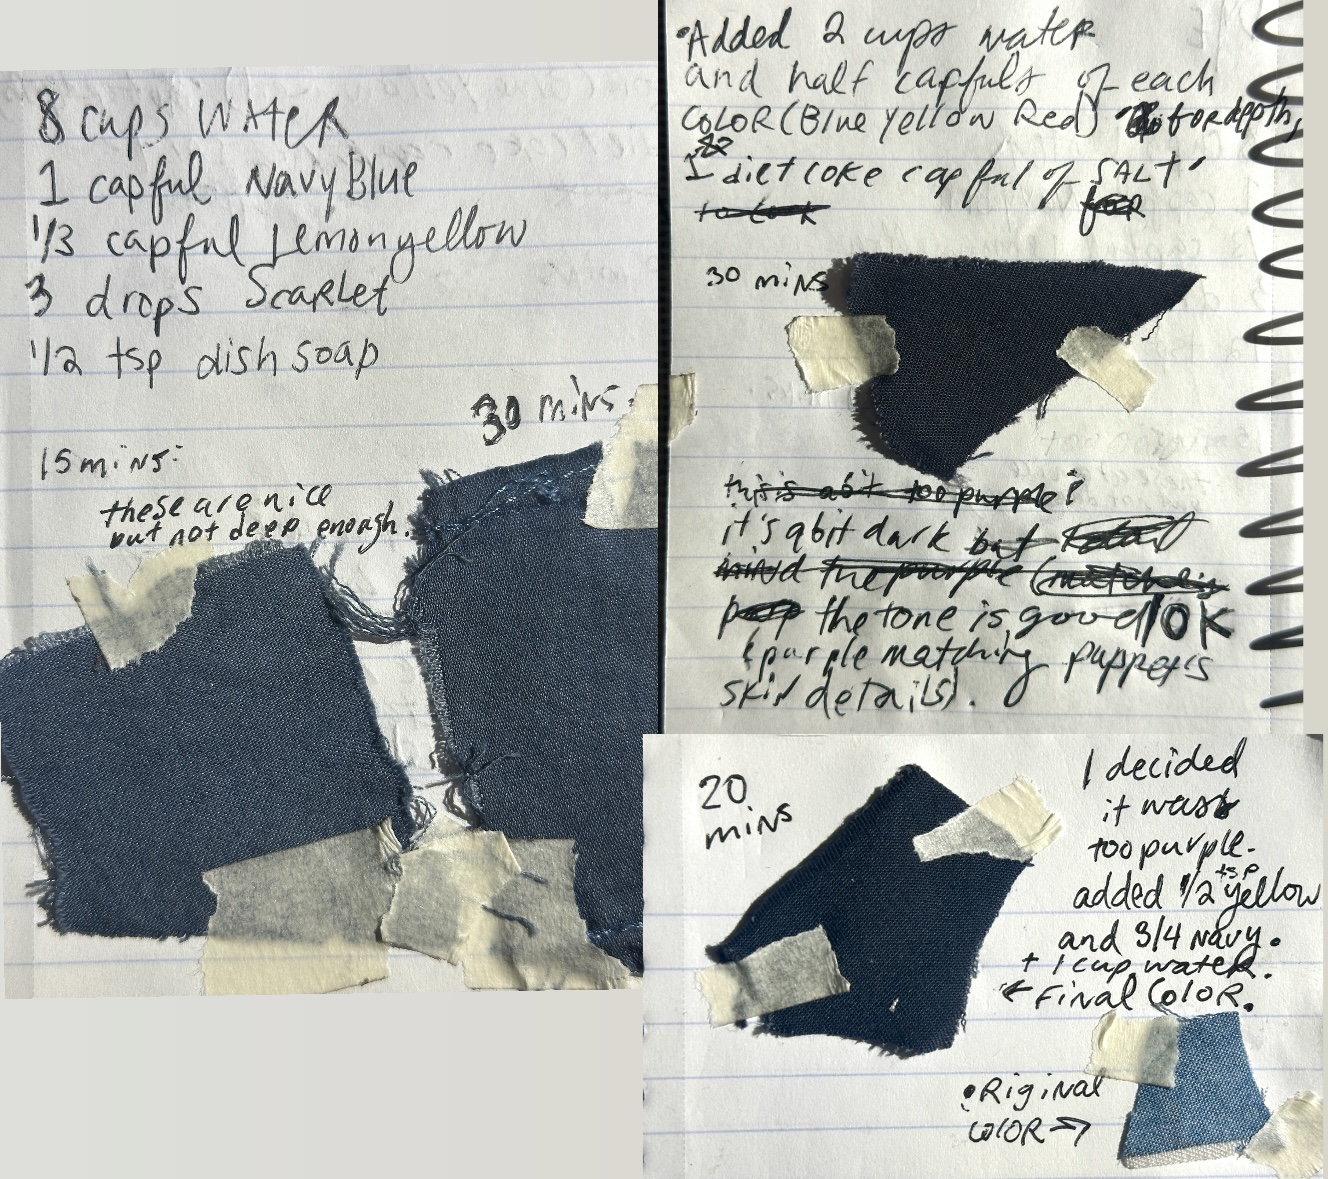 8 cups WATER
1 capful NavyBlue
1/3 capful Lemonyellow
3 drops Scarlet
1/2 tsp dish soap
30 mins.
15 mins:
these are nice
but not deep enough.
•Added 2 cups water
and half capfuls of each
COLOR (Blue yellow Red) for depth,
1 diet coke capful of SALT
30 mins
this is a bit too purple?
it's a bit dark but
mind the purple (matches
the tone is good/OK
(purple matching puppets
skin details).
20
mins
I decided
it was
too purple.
added 1/2 tsp yellow
and 3/4 Navy.
+ 1 cup water.
← Final Color.
original
color →